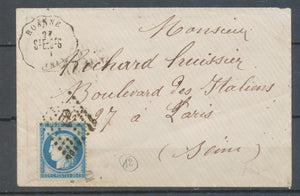 ROANNE
Monsieur
Richard huissier
Boulevard des Italiens
27 à Paris
(Seine)
12